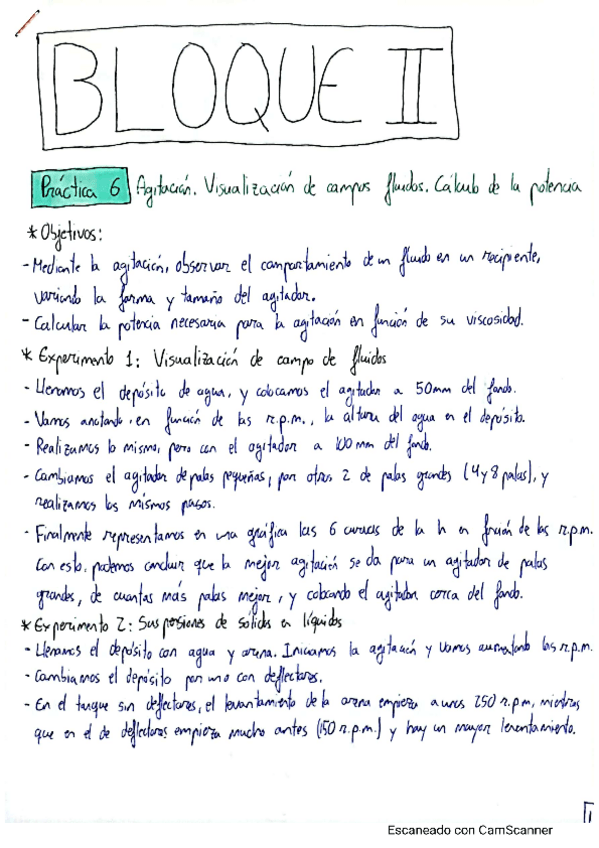 BLOQUE II
Práctica 6 Agitación. Visualización de campos fluidos. Cálculo de la potencia
* Objetivos:
- Mediante la agitación, observar el comportamiento de un fluido en un recipiente,
variando la forma y tamaño del agitador.
- Calcular la potencia necesaria para la agitación en función de su viscosidad.
* Experimento 1: Visualización de campo de fluidos
- Llenamos el depósito de agua, y colocamos el agitador a 50mm del fondo.
- Vamos anotando, en función de las r.p.m., la altura del agua en el depósito.
- Realizamos lo mismo, pero con el agitador a 100 mm del fondo.
- Cambiamos el agitador de palas pequeñas, por otros 2 de palas grandes (4 y 8 palas), y
realizamos los mismos pasos.
- Finalmente representamos en una gráfica las 6 curvas de la h en función de las r.p.m.
Con esto, podemos concluir que la mejor agitación se da para un agitador de palas
grandes, de cuantas más palas mejor, y colocando el agitador cerca del fondo.
* Experimento 2: Suspensiones de sólidos en líquidos
- Llenamos el depósito con agua y arena. Iniciamos la agitación y vamos aumentando las r.p.m.
- Cambiamos el depósito por uno con deflectores.
- En el tanque sin deflectores, el levantamiento de la arena empieza a unos 250 r.p.m, mientras
que en el de deflectores empieza mucho antes (150 r.p.m.) y hay un mayor levantamiento.
Escaneado con CamScanner